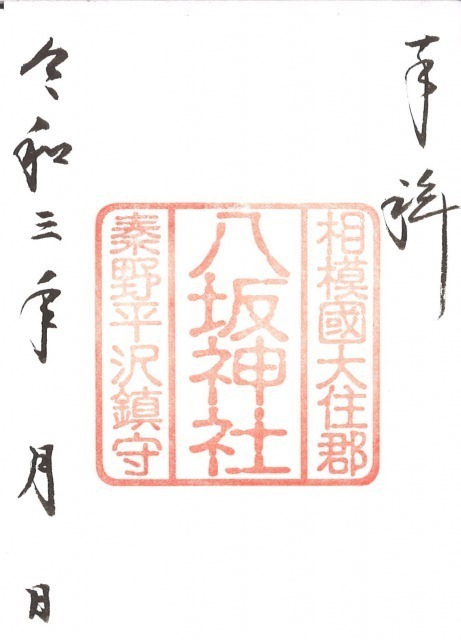 奉拝
相模國大住郡
八坂神社
秦野平沢鎮守
令和三年 月 日